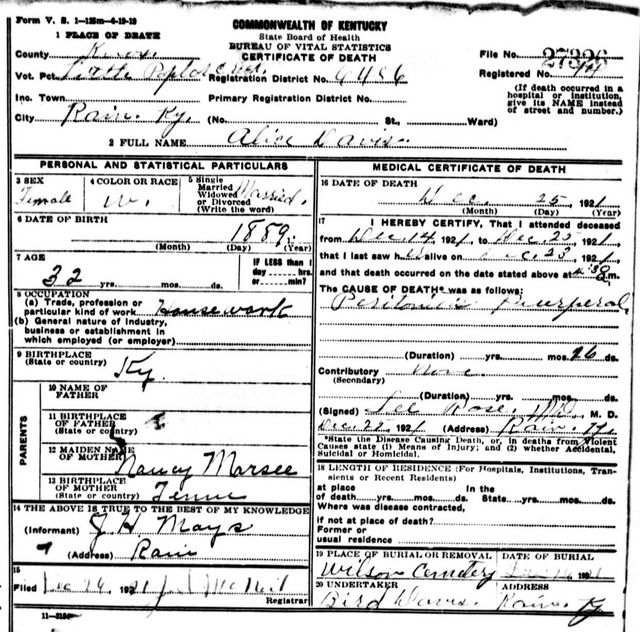 Form V. S. 1—125m—4-19-19
COMMONWEALTH OF KENTUCKY
State Board of Health
BUREAU OF VITAL STATISTICS
CERTIFICATE OF DEATH
1 PLACE OF DEATH
County Knox
Vot. Pct. Little Poplar Creek
Registration District No. 6486
File No. 27326
Registered No.
Inc. Town
Primary Registration District No.
City Rain, Ky. (No. St., Ward)
(If death occurred in a hospital or institution, give its NAME instead of street and number.)
2 FULL NAME Alice Davis
PERSONAL AND STATISTICAL PARTICULARS
3 SEX Female
4 COLOR OR RACE W.
5 Single Married Widowed or Divorced (Write the word) Married.
6 DATE OF BIRTH 1889.
(Month) (Day) (Year)
7 AGE 32 yrs. mos. ds.
IF LESS than 1 day hrs. or min?
8 OCCUPATION
(a) Trade, profession or particular kind of work Housework
(b) General nature of industry, business or establishment in which employed (or employer)
9 BIRTHPLACE (State or country) Ky.
PARENTS
10 NAME OF FATHER
11 BIRTHPLACE OF FATHER (State or country)
12 MAIDEN NAME OF MOTHER Nancy Marsee
13 BIRTHPLACE OF MOTHER (State or country) Tenn
14 THE ABOVE IS TRUE TO THE BEST OF MY KNOWLEDGE
(Informant) J. H. Mays
(Address) Rain
15
Filed Dec 26 1921 McNeil
Registrar
11—3150
MEDICAL CERTIFICATE OF DEATH
16 DATE OF DEATH Dec. 25 1921
(Month) (Day) (Year)
17 I HEREBY CERTIFY, That I attended deceased
from Dec. 14 1921, to Dec. 25 1921,
that I last saw h alive on Dec. 23 1921,
and that death occurred on the date stated above at m.
The CAUSE OF DEATH* was as follows:
Peritonitis Puerperal
(Duration) yrs. mos. 26 ds.
Contributory None
(Secondary)
(Duration) yrs. mos. ds.
(Signed) Lee Rose, M.D., M. D.
Dec. 22, 1921 (Address) Rain, Ky.
*State the Disease Causing Death, or, in deaths from Violent Causes state (1) Means of Injury; and (2) whether Accidental, Suicidal or Homicidal.
18 LENGTH OF RESIDENCE (For Hospitals, Institutions, Transients or Recent Residents)
at place of death yrs. mos. ds. In the State yrs. mos. ds.
Where was disease contracted,
if not at place of death?
Former or usual residence
19 PLACE OF BURIAL OR REMOVAL Wilson Cemetery
DATE OF BURIAL 1921
20 UNDERTAKER Bird Davis.
ADDRESS Rain, Ky